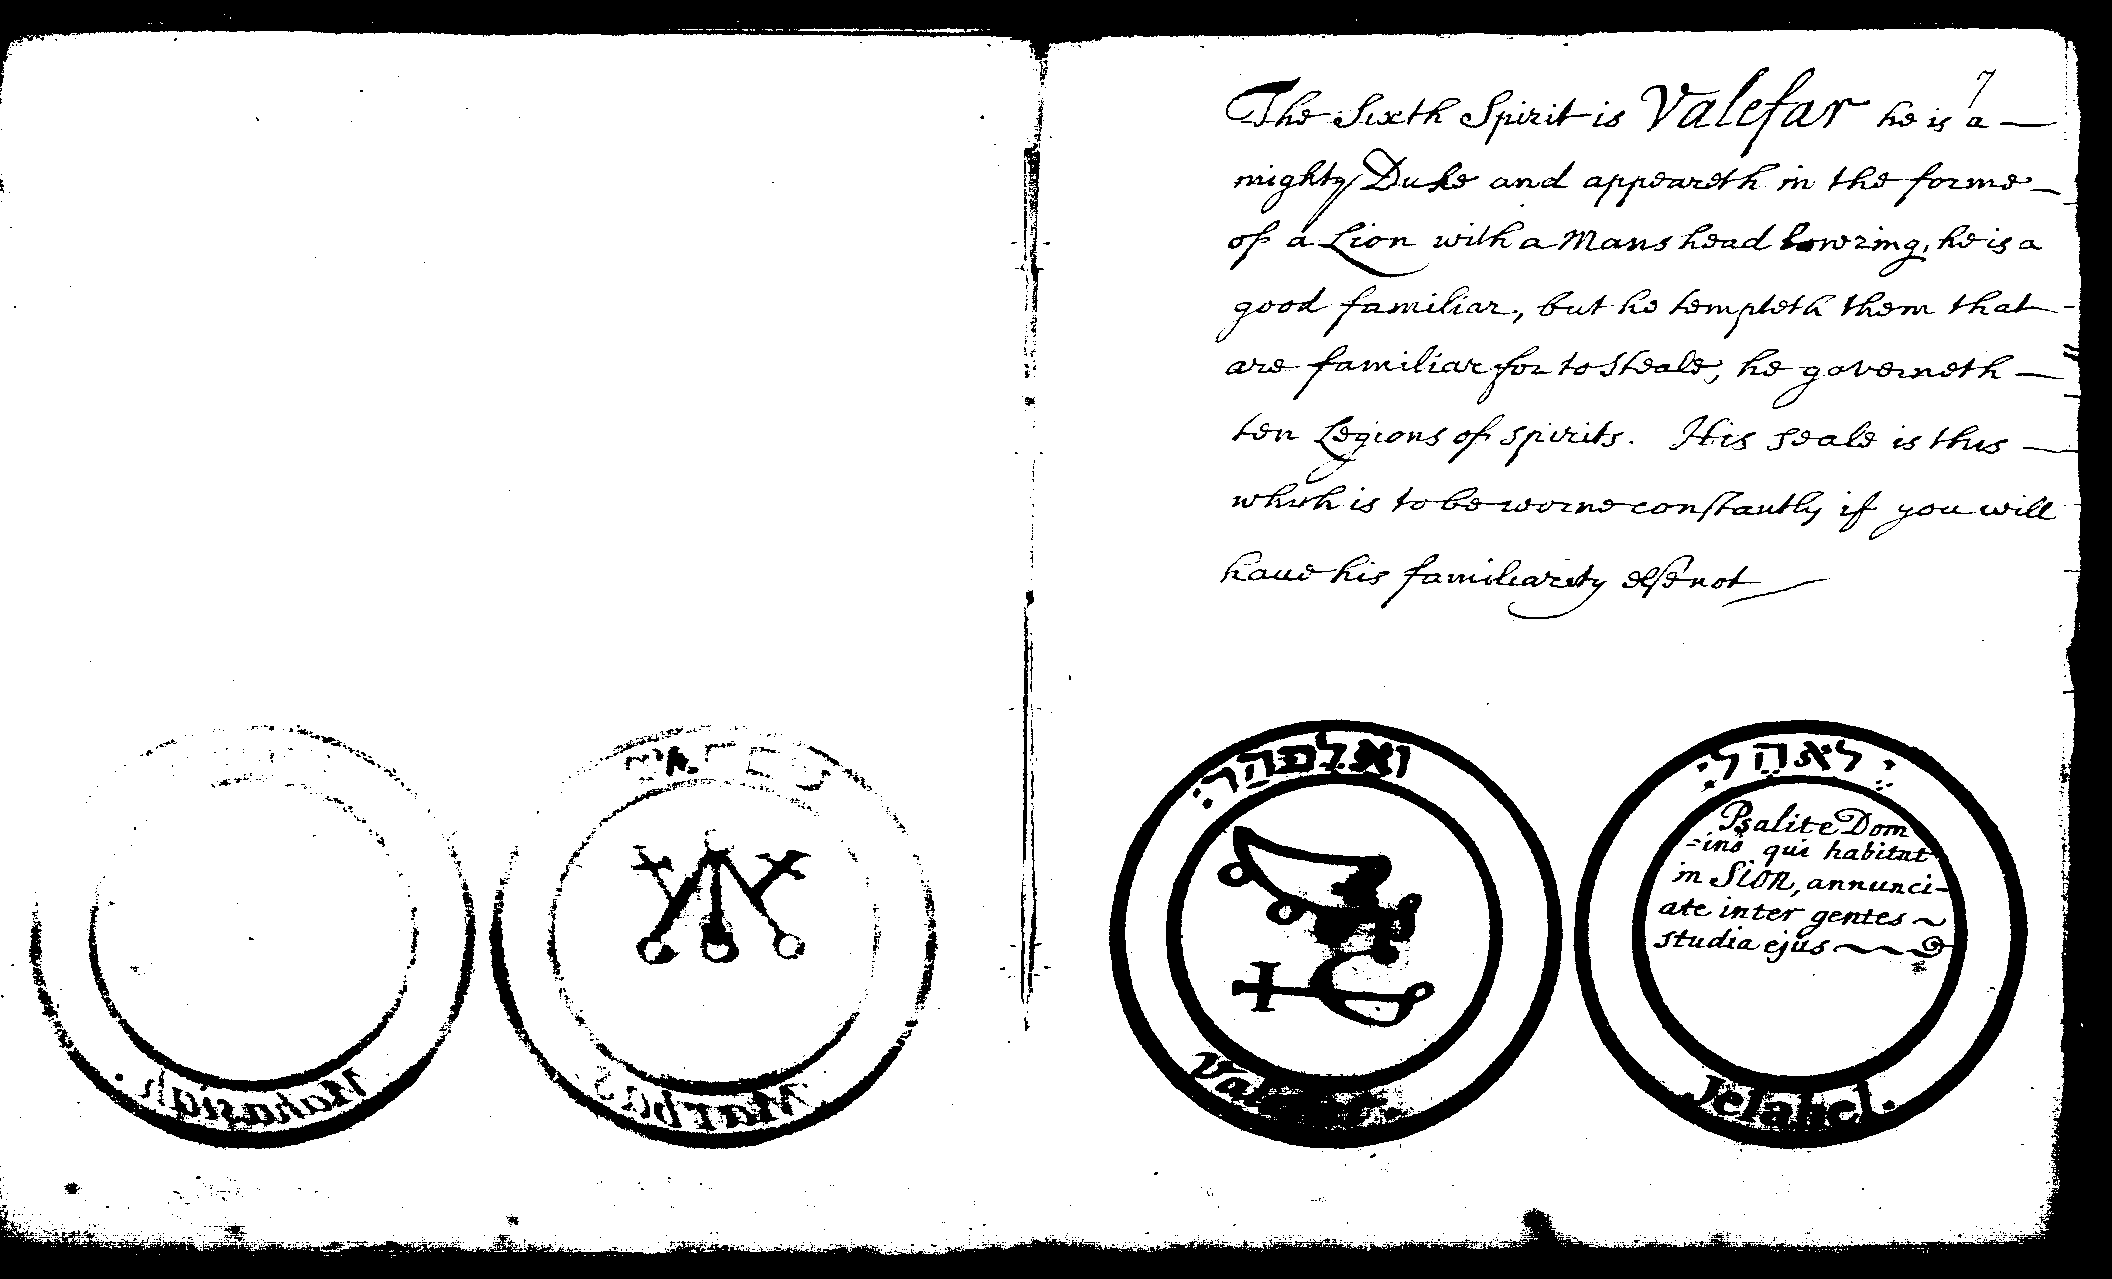 7
The Sixth Spirit is Valefar he is a
mighty Duke and appeareth in the forme
of a Lion with a Mans head lowring, he is a
good familiar, but he tempteth them that
are familiar for to steale, he governeth
ten Legions of spirits. His seale is this
which is to be worne constantly if you will
haue his familiarity else not
ואלפהר:
Valefar.
ילאהל:
Psalite Dom
=ino qui habitat
in Sion, annunci-
ate inter gentes
studia ejus
Jelahel.
Mahasiah.
Marbas.